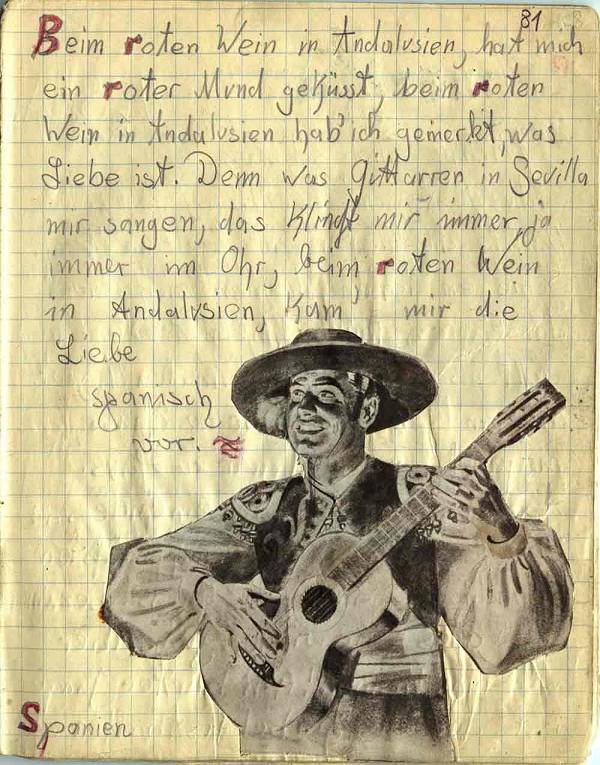 81
Beim roten Wein in Andalusien, hat mich
ein roter Mund geküsst, beim roten
Wein in Andalusien hab' ich gemerkt, was
Liebe ist. Denn was Gittarren in Sevilla
mir sangen, das klingt mir immer, ja
immer im Ohr, beim roten Wein
in Andalusien, kam' mir die
Liebe
spanisch
vor.
Spanien